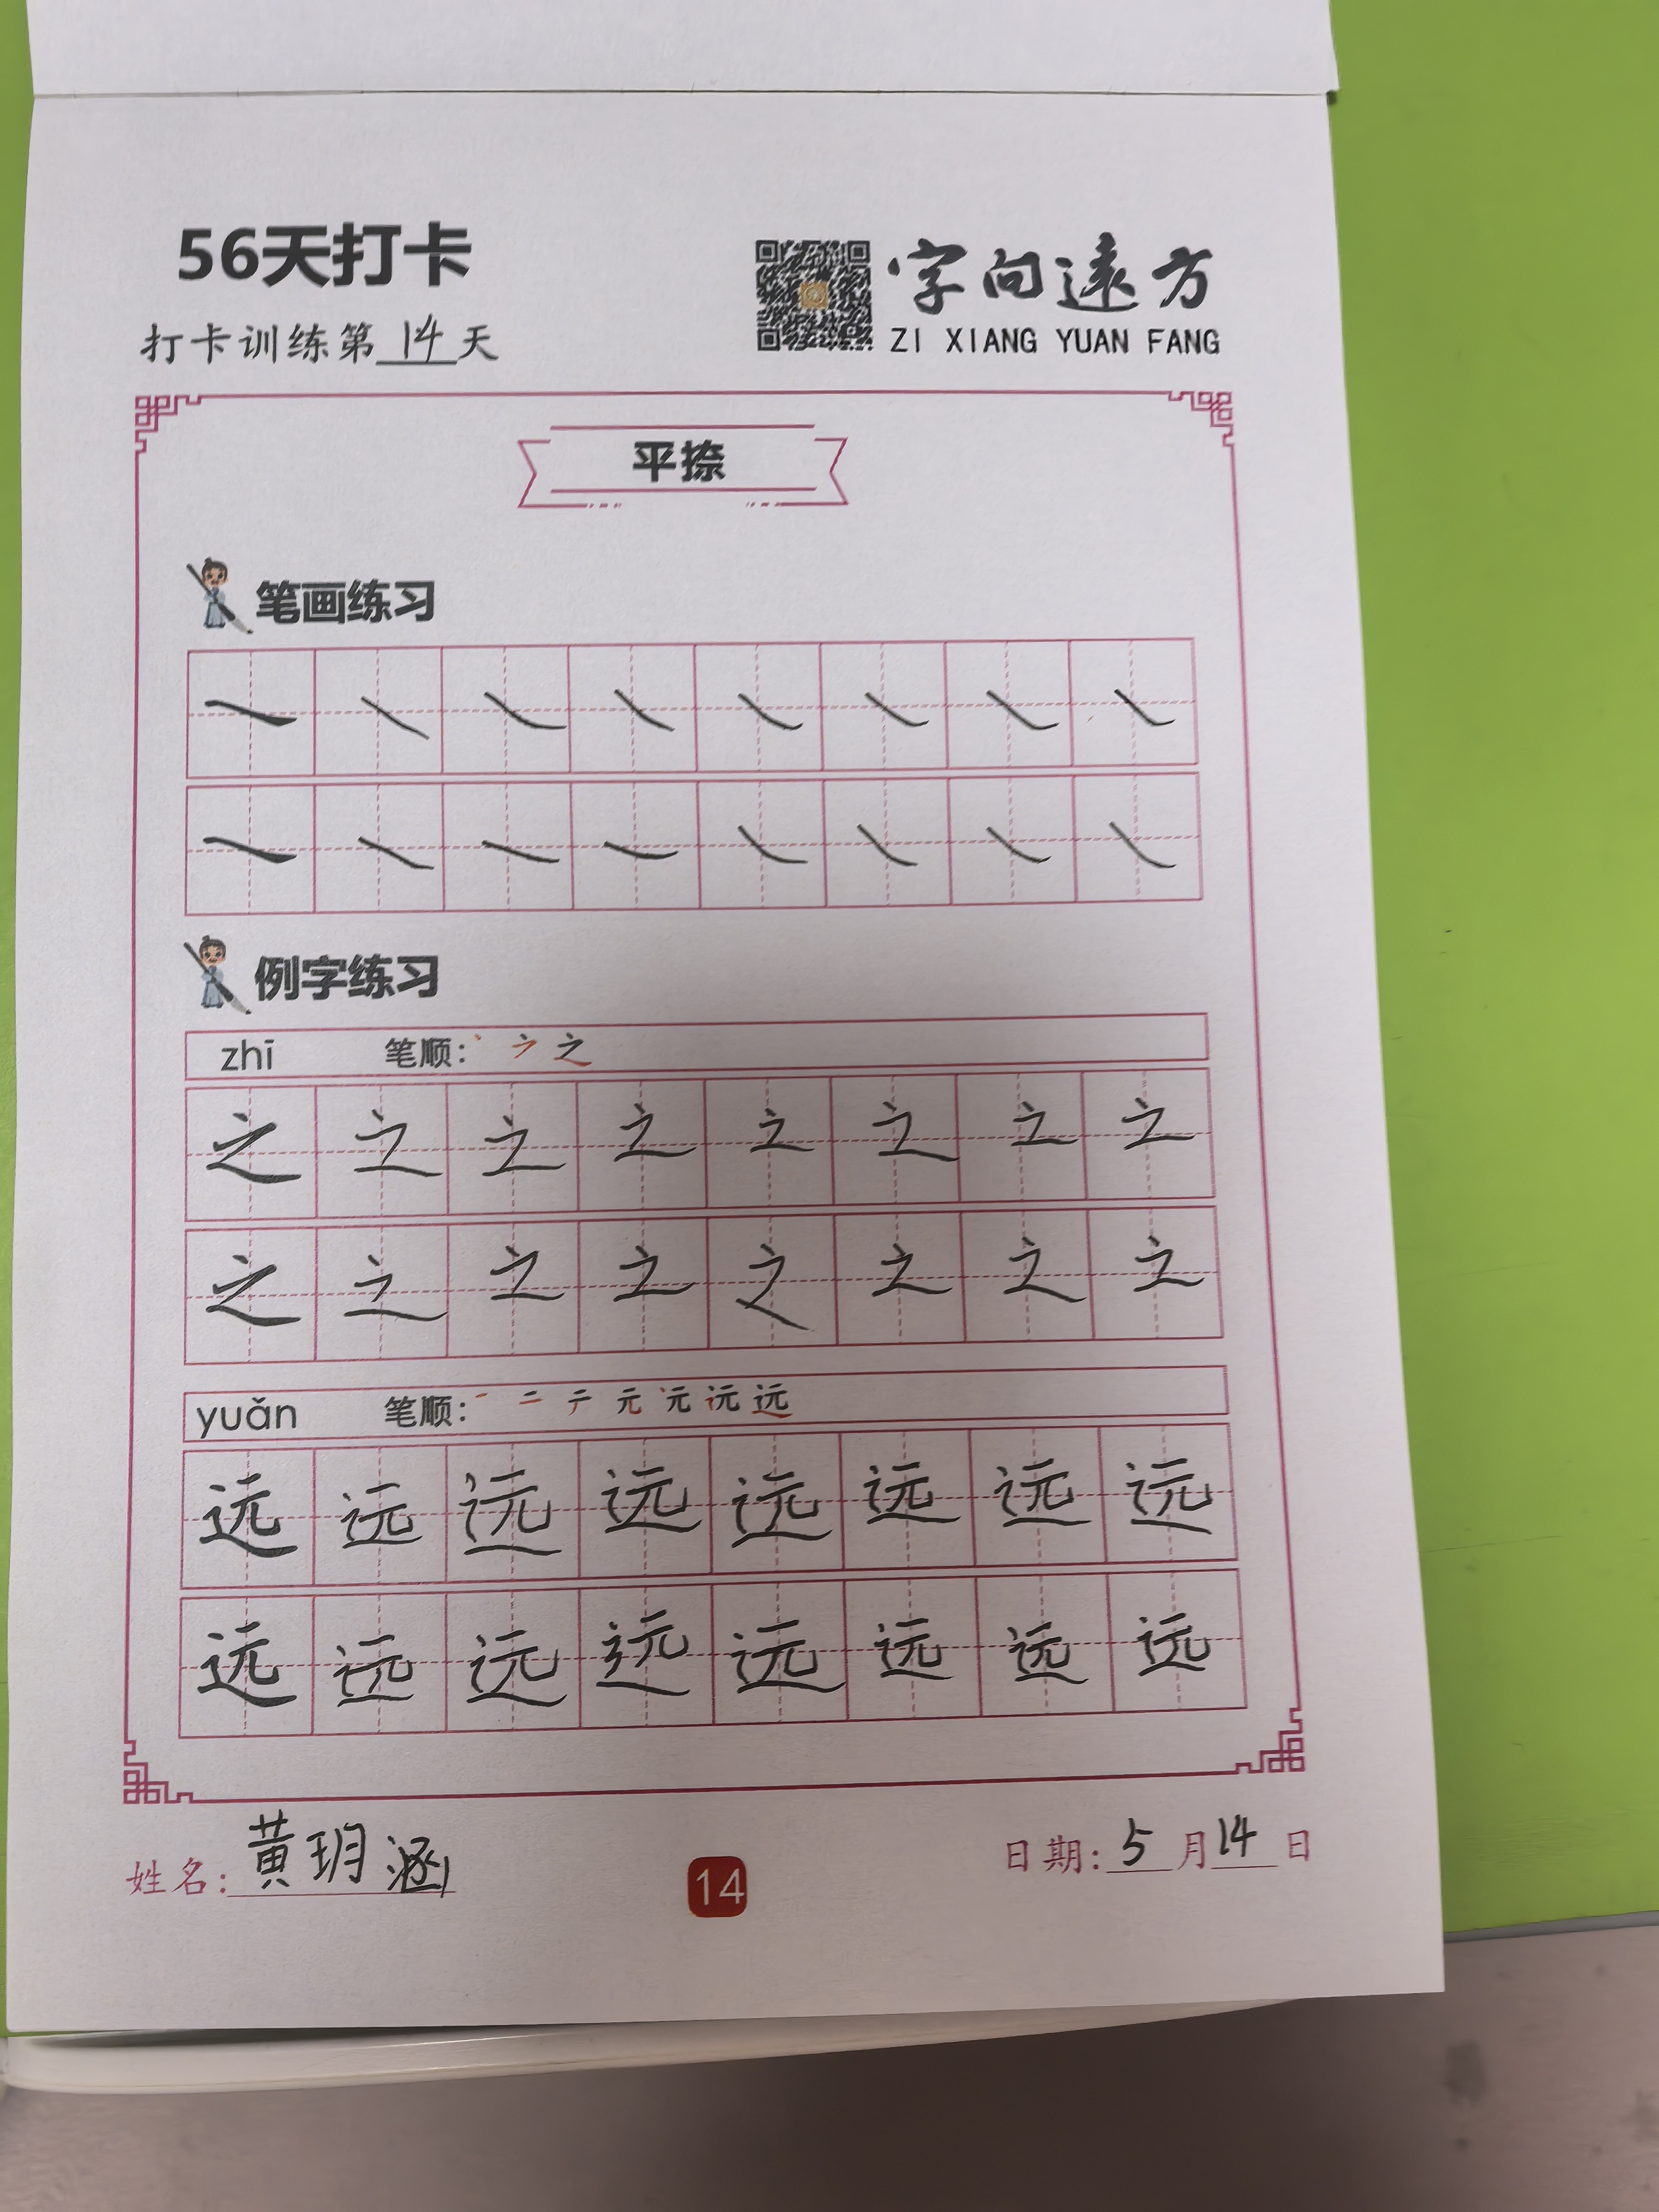 56天打卡
字向遠方
打卡训练第14天
ZI XIANG YUAN FANG
平捺
笔画练习
例字练习
zhī 笔顺: 丶 ㇇ 之
之 之 之 之 之 之 之 之
之 之 之 之 之 之 之 之
yuǎn 笔顺: 一 二 テ 元 元 远 远
远 远 远 远 远 远 远 远
远 远 远 远 远 远 远 远
姓名: 黄玥涵
14
日期: 5月14日